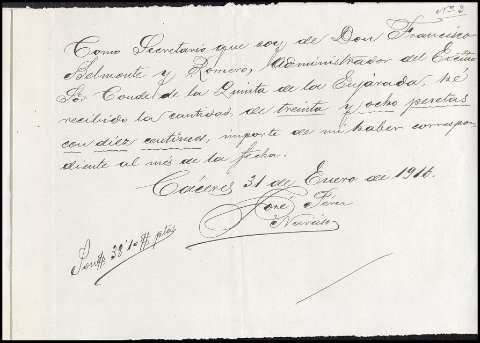 Nº 2
Como Secretario que soy de Don Francisco
Belmonte y Romero, Administrador del Excmo
Sor Conde de la Quinta de la Enjarada, hé
recibido la cantidad de treinta y ocho pesetas
con diez centimos, importe de mi haber correspon
diente al més de la fecha.
Cáceres 31 de Enero de 1916.
José
Son 38'10 ptas